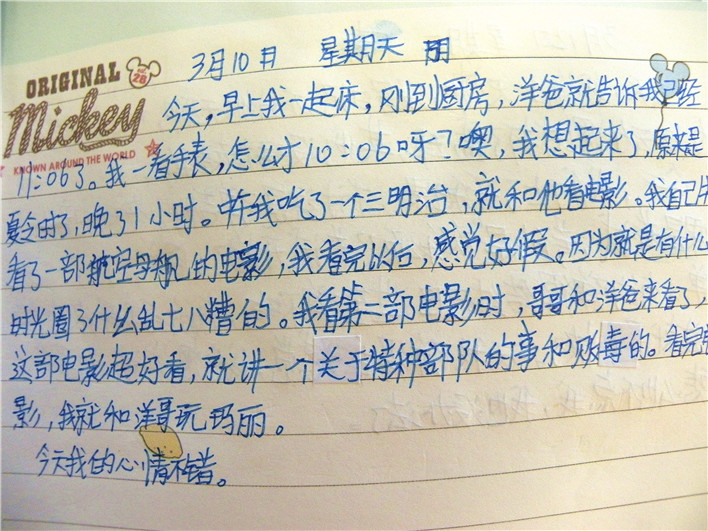 3月10日 星期天 阴
ORIGINAL
Mickey
28
KNOWN AROUND THE WORLD
今天,早上我一起床,刚到厨房,洋爸就告诉我已经
11:06了。我一看手表,怎么才10:06呀?噢,我想起来了,原来是
夏令时了,晚了1小时。我吃了一个三明治,就和他看电影。我自己
看了一部航空母舰的电影,我看完以后,感觉好假。因为就是有什么
时光圈了什么乱七八糟的。我看第二部电影时,哥哥和洋爸来看了,
这部电影超好看,就讲一个关于特种部队的事和贩毒的。看完
影,我就和洋哥玩玛丽。
今天我的心情不错。